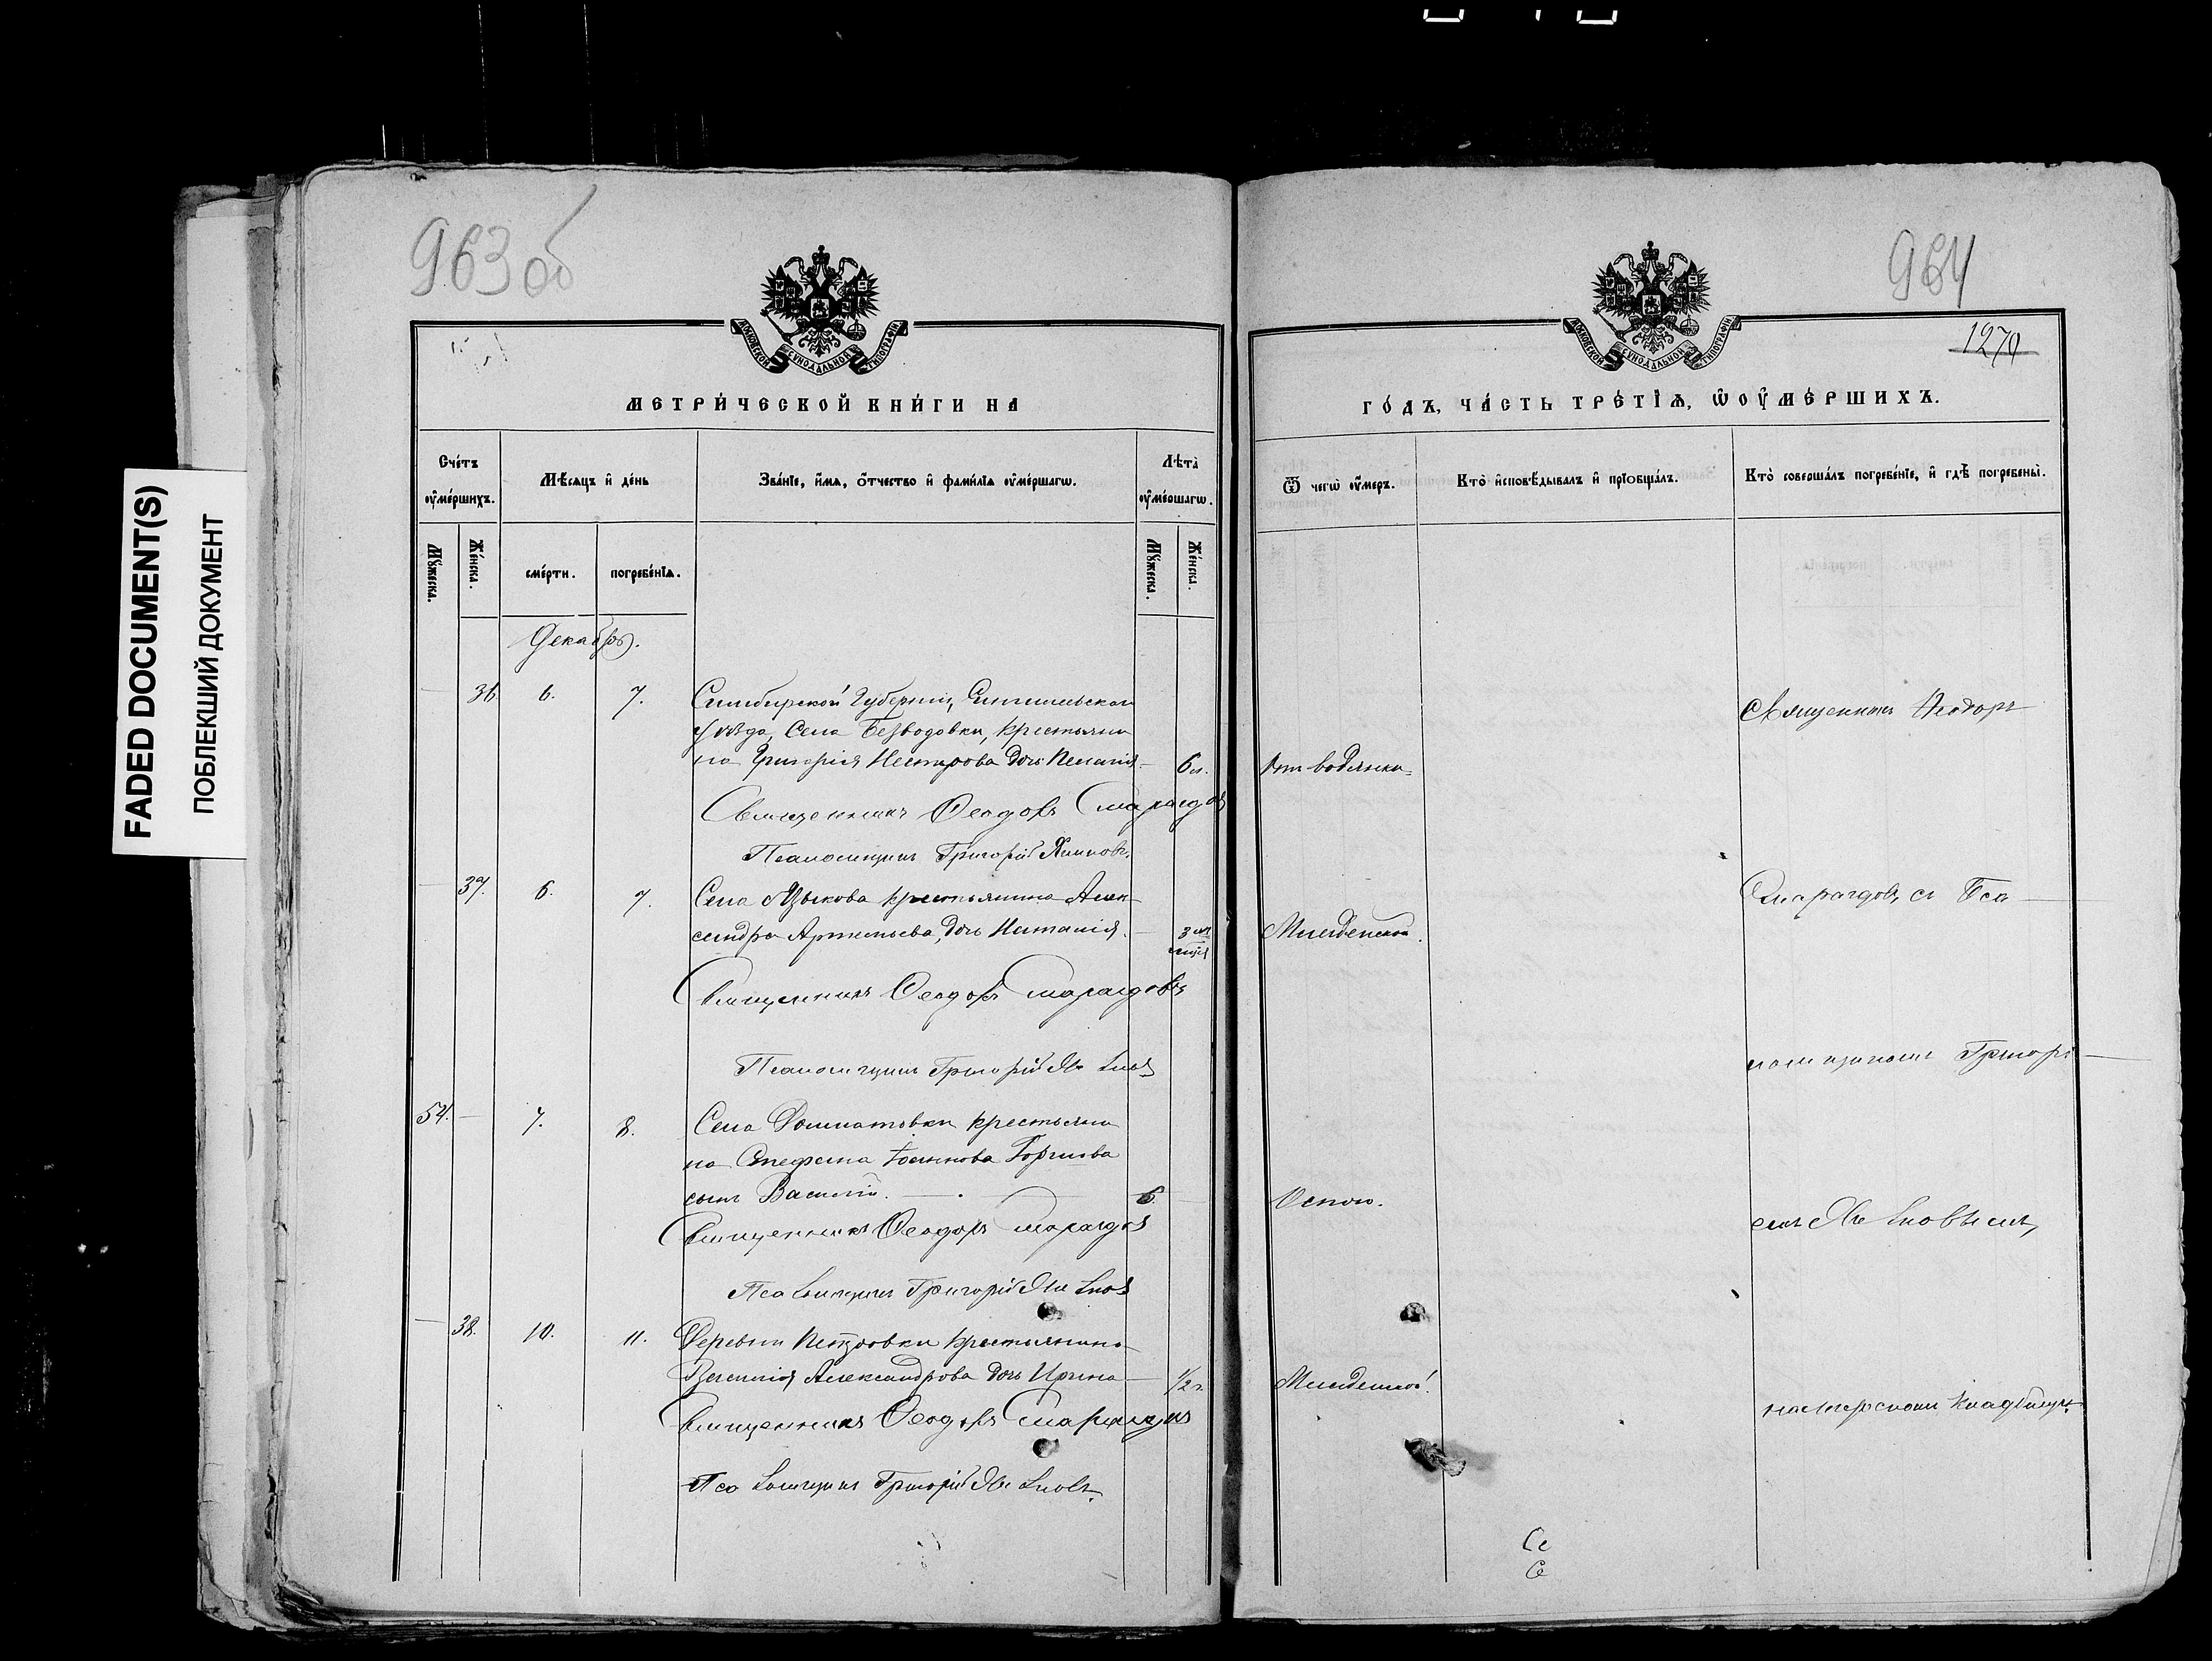 FADED DOCUMENT(S)
ПОБЛЕКШИЙ ДОКУМЕНТ
963 об
МОСКОВСКОЙ СѴНОДАЛЬНОЙ ТИПОГРАФІИ
МЕТРИ́ЧЕСКОЙ КНИ́ГИ НА
Сче́тъ ᲂу҆ме́ршихъ.
Мѣ́сѧцъ и҆ де́нь
Зва́нїе, и҆́мѧ, ѻ҆́тчество и҆ фами́лїѧ ᲂу҆ме́ршагѡ.
Лѣ́та ᲂу҆ме́ршагѡ.
Мꙋ́жеска.
Же́нска.
сме́рти.
погребе́нїѧ.
Мꙋ́жеска.
Же́нска.
Декабрь.
36. 6. 7. Симбирской Губерніи,
уѣзда, Села Безводовки, крестьяни
на Григорія Нестерова дочь Пелагія 6 м.
Священникъ Ѳеодоръ Смарагдовъ
Псаломщикъ Григорій Яковъ.
37. 6. 7. Села Языкова крестьянина Алек
сандра Артемьева, дочь Наталія. 3 мѣ
сяца
Священникъ Ѳеодоръ Смарагдовъ
Псаломщикъ Григорій
54. 7. 8. Села Домматовки крестьяни
на Стефана Іоаннова Горшкова
сынъ Василій. 6.
Священникъ Ѳеодоръ Смарагдовъ
Псаломщикъ Григорій
38. 10. 11. Деревни Петровки крестьянина
Василія Александрова дочь Ирина 1/2 г.
Священникъ Ѳеодоръ Смарагдовъ
Псаломщикъ Григорій
964
1270
МОСКОВСКОЙ СѴНОДАЛЬНОЙ ТИПОГРАФІИ
ГО́ДЪ, ЧА́СТЬ ТРЕ́ТЇѦ, Ѡ ОУ҆МЕ́РШИХЪ.
Ѿ чегѡ̀ ᲂу҆́меръ.
Кто̀ и҆сповѣ́дывалъ и҆ прїѡбща́лъ.
Кто̀ соверша́лъ погребе́нїе, и҆ гдѣ̀ погребены̀.
Священникъ Ѳеодоръ
Отъ водянки
Смарагдовъ съ Пса
Младенской.
ломщикомъ Григорі
Оспою.
емъ
Младенской.
на кладбищѣ.
Се
Се